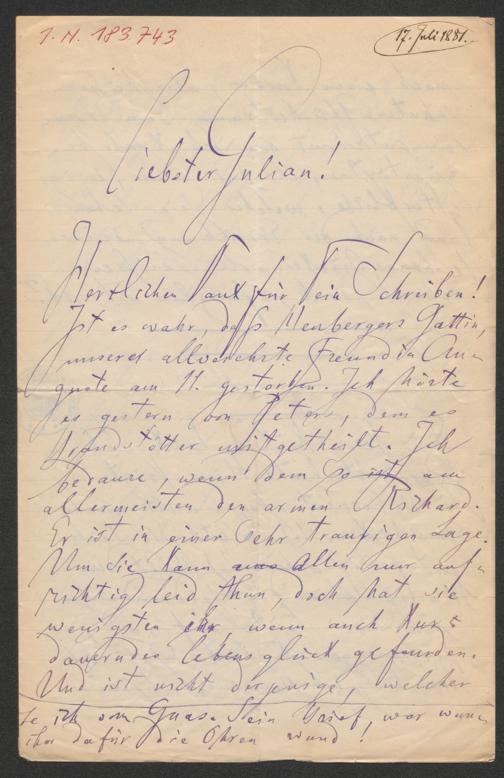 I. N. 183743
17. Juli 1881.
Liebster Julian!
Herzlichen Dank für Dein Schreiben!
Ist es wahr, daß Heubergers Gattin,
unserer allverehrte Freundin Au-
guste am 11. gestorben. Ich hörte
es gestern von Peters, dem es
Brandstötter mitgetheilt. Ich
bedaure, wenn dem so ist, am
allermeisten den armen Richard.
Er ist in einer sehr traurigen Lage.
Um sie kann uns Allen nur auf-
richtig leid thun, doch hat sie
wenigsten ihr wenn auch kurz
dauerndes Lebensglück gefunden.
Und ist nicht derjenige, welcher
ich von Dein war
ihm dafür die Ohren wund!